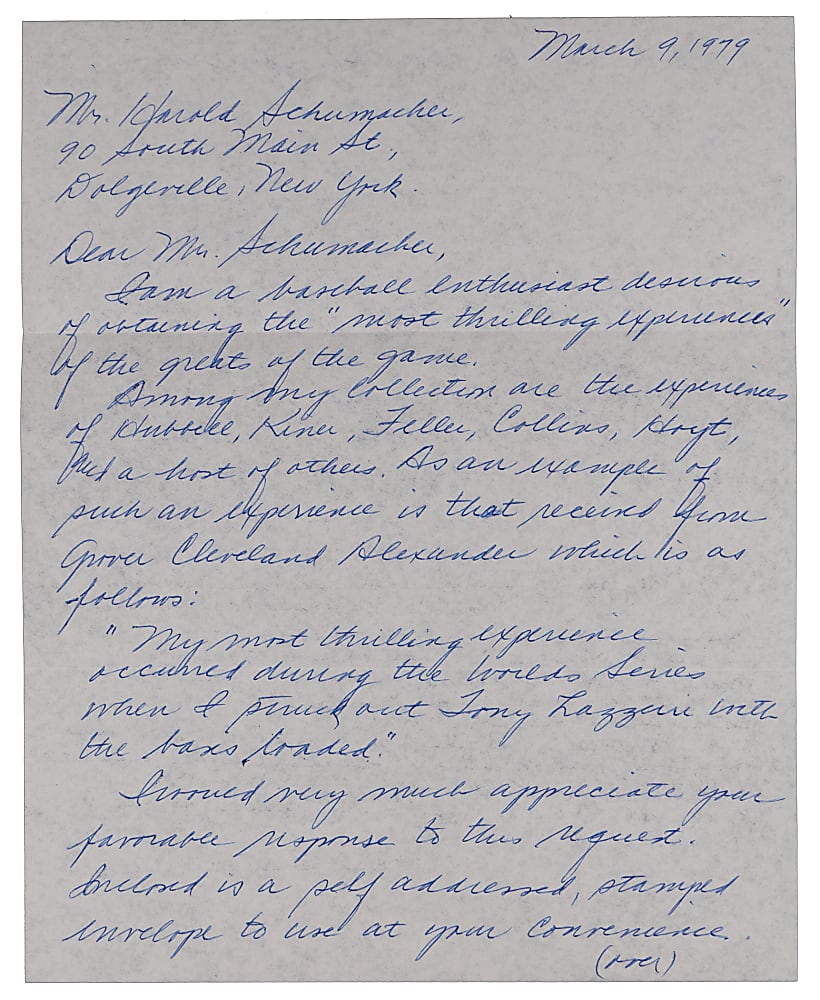 March 9, 1979
Mr. Harold Schumacher,
90 South Main St.,
Dolgeville, New York.
Dear Mr. Schumacher,
I am a baseball enthusiast desirous
of obtaining the "most thrilling experiences"
of the greats of the game.
Among my collection are the experiences
of Hubbell, Kiner, Feller, Collins, Hoyt,
and a host of others. As an example of
such an experience is that received from
Grover Cleveland Alexander which is as
follows:
"My most thrilling experience
occurred during the Worlds Series
when I struck out Tony Lazzeri with
the bases loaded."
I would very much appreciate your
favorable response to this request.
Inclosed is a self addressed, stamped
envelope to use at your convenience.
(over)